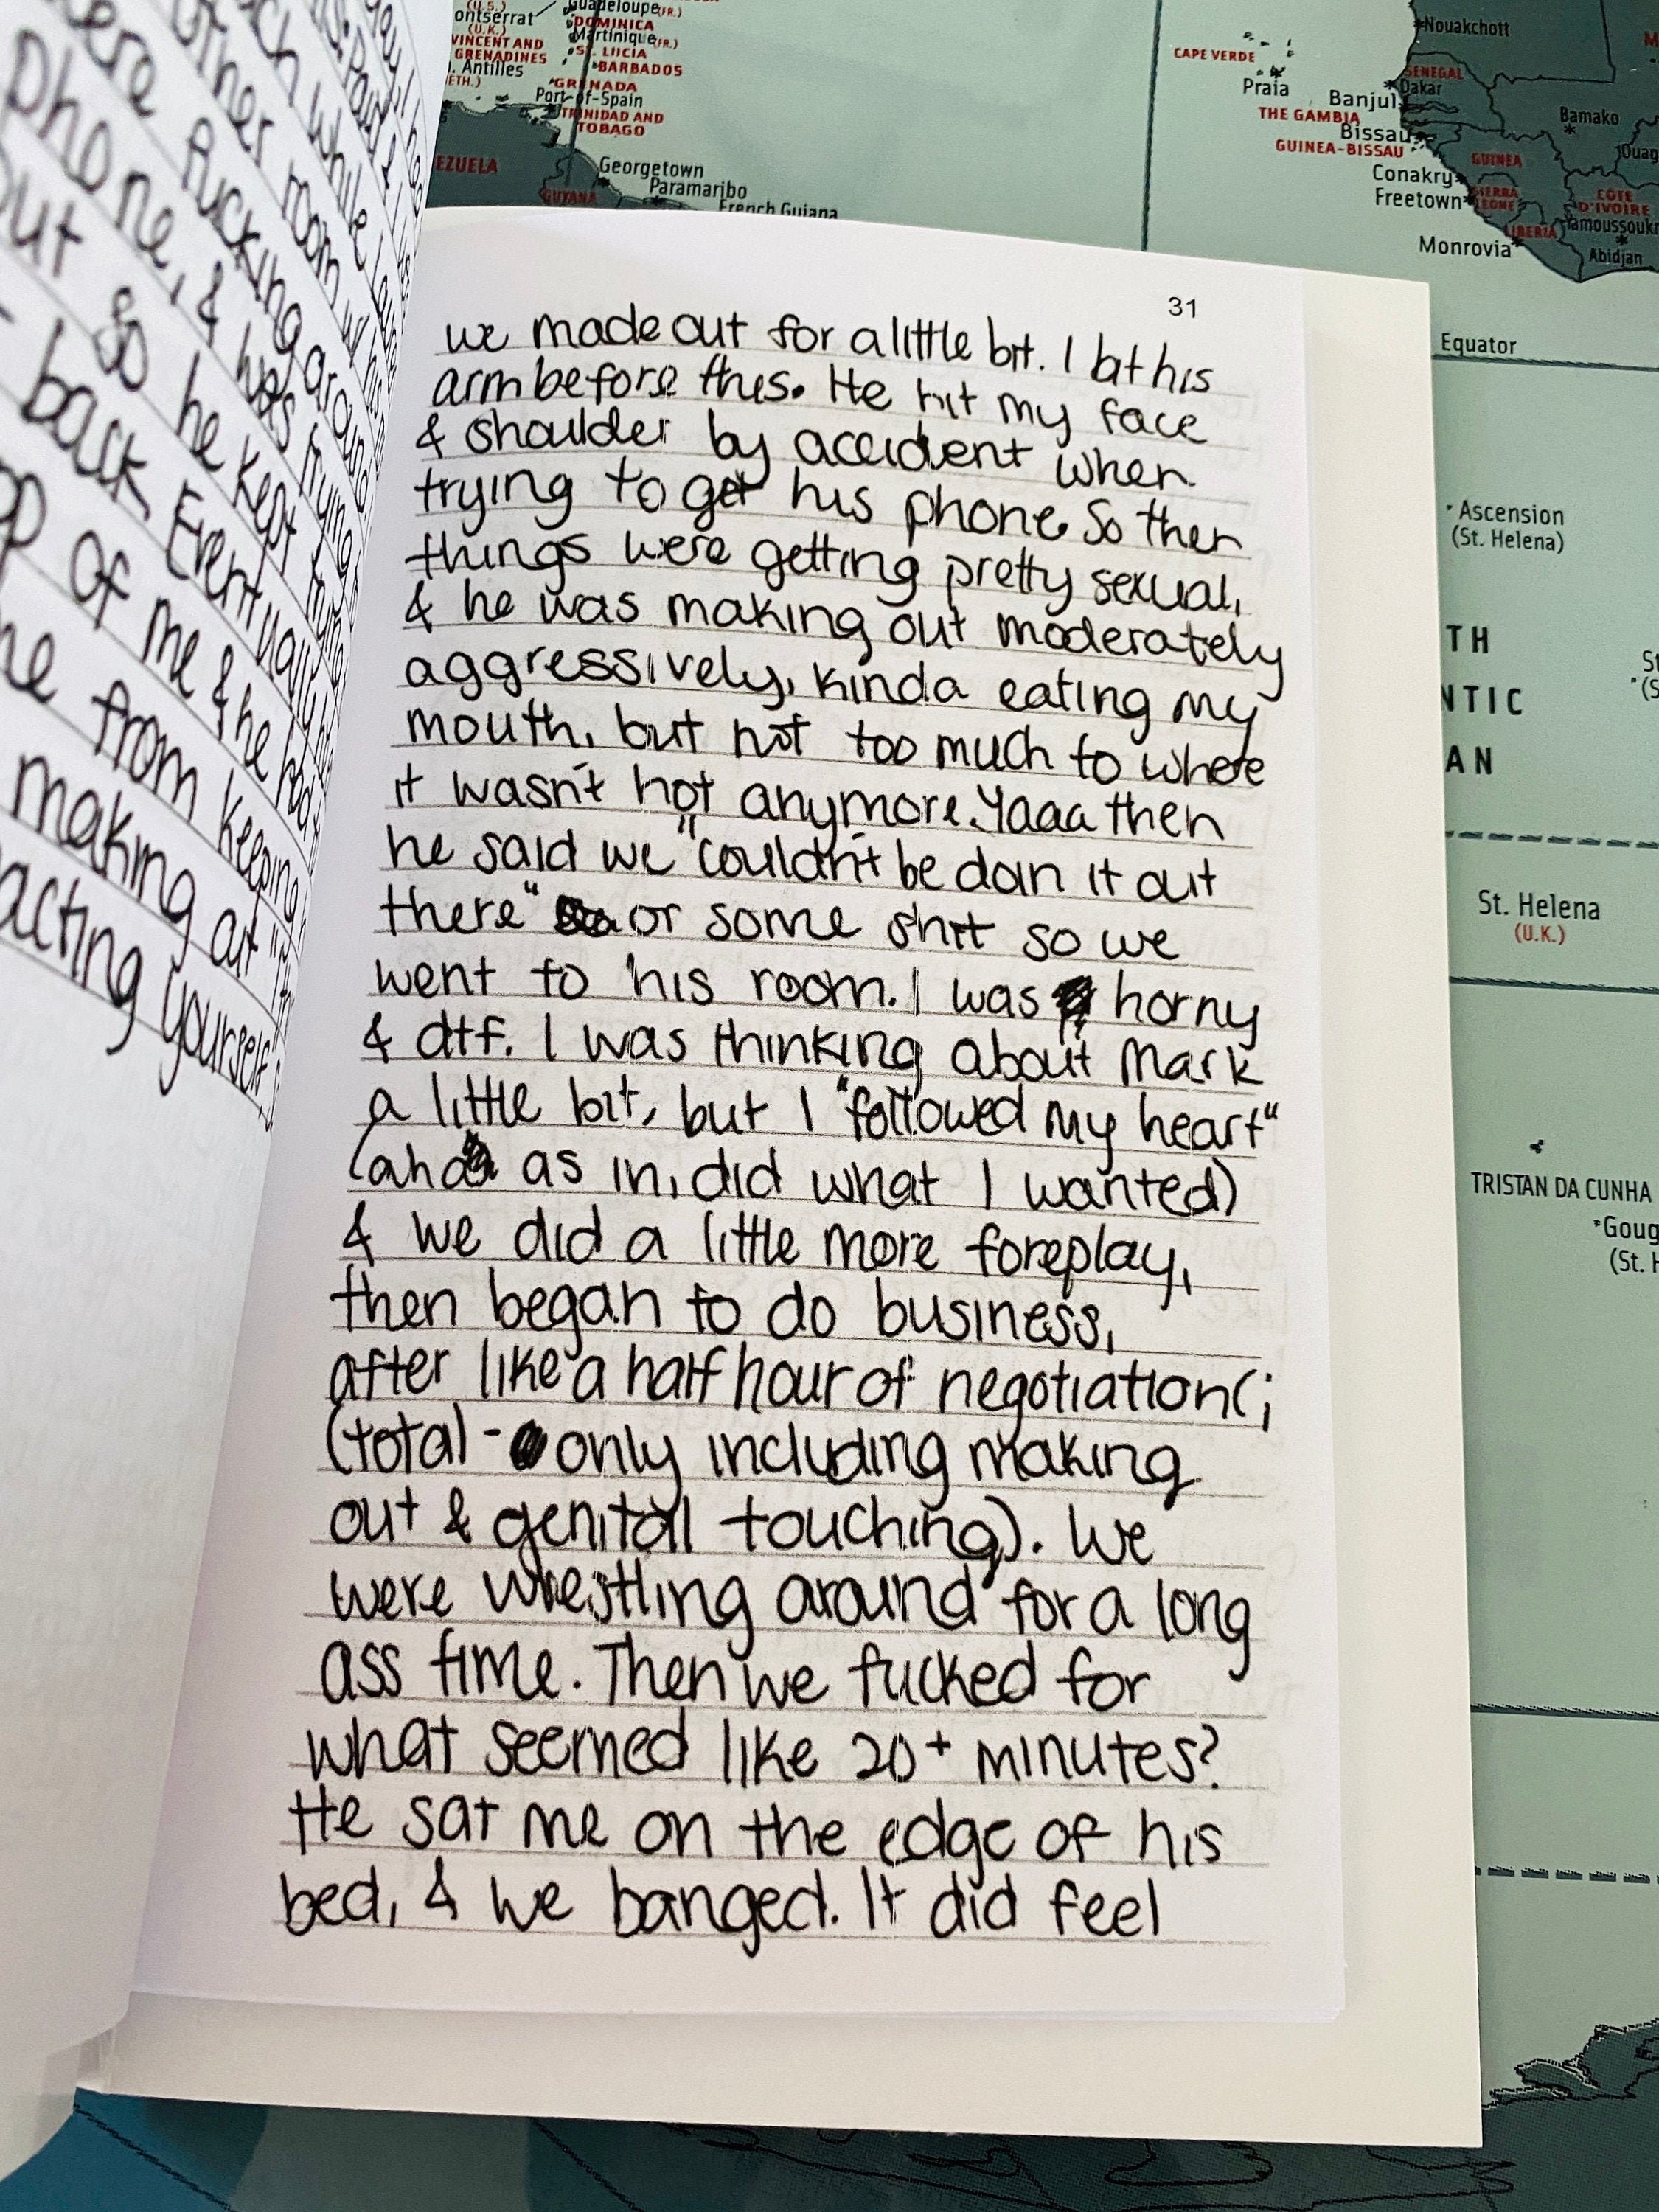 (U.S.)
ontserrat
(U.K.)
VINCENT AND
GRENADINES
. Antilles
ETH.)
Guadeloupe (FR.)
DOMINICA
Martinique (FR.)
ST. LUCIA
BARBADOS
GRENADA
Port-of-Spain
TRINIDAD AND
TOBAGO
EZUELA
Georgetown
GUYANA
Paramaribo
French Guiana
CAPE VERDE
Praia
Nouakchott
SENEGAL
Dakar
Banjul
THE GAMBIA
Bissau
GUINEA-BISSAU
Bamako
Ouag
GUINEA
Conakry
Freetown
SIERRA
LEONE
CÔTE
D'IVOIRE
LIBERIA
Yamoussoukr
Monrovia
Abidjan
Equator
Ascension
(St. Helena)
TH
NTIC
AN
St. Helena
(U.K.)
TRISTAN DA CUNHA
Goug
(St. H
ere fucking around
phone, & was trying
out so he kept trying
back. Eventually
op of me & he had
he from keeping
making out
acting yourself"
31
we made out for a little bit. I bit his
arm before this. He hit my face
& shoulder by accident when
trying to get his phone. So then
things were getting pretty sexual,
& he was making out moderately
aggressively, kinda eating my
mouth, but not too much to where
it wasn't hot anymore. Yaaa then
he said we "couldn't be doin it out
there" or some shit so we
went to his room. I was horny
& dtf. I was thinking about Mark
a little bit, but I "followed my heart"
(aha as in, did what I wanted)
& we did a little more foreplay,
then began to do business,
after like a half hour of negotiation(;
(total - only including making
out & genital touching). We
were wrestling around for a long
ass time. Then we fucked for
what seemed like 20+ minutes?
He sat me on the edge of his
bed, & we banged. It did feel